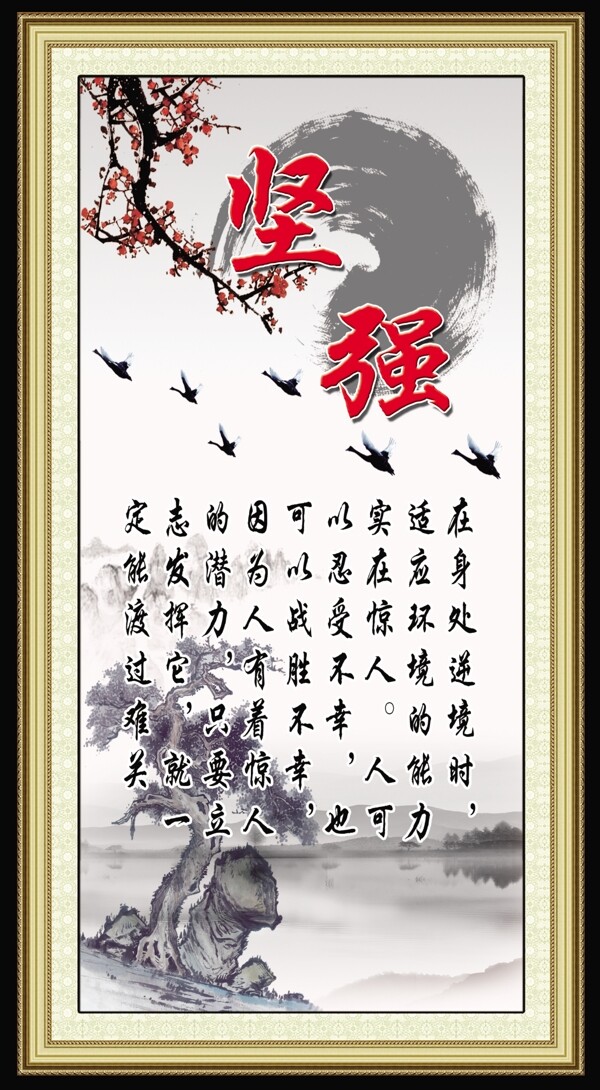 坚
强
在身处逆境时，
适应环境的能力
实在惊人。人可
以忍受不幸，也
可以战胜不幸，
因为人有着惊人
的潜力，只要立
志发挥它，就一
定能渡过难关